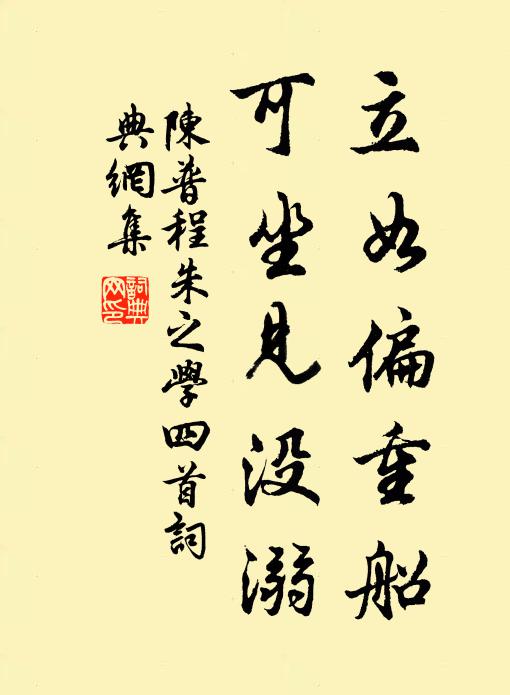 立如偏重船
可坐見没溺
陳普程朱之學四首詞
典網集
詞典網印